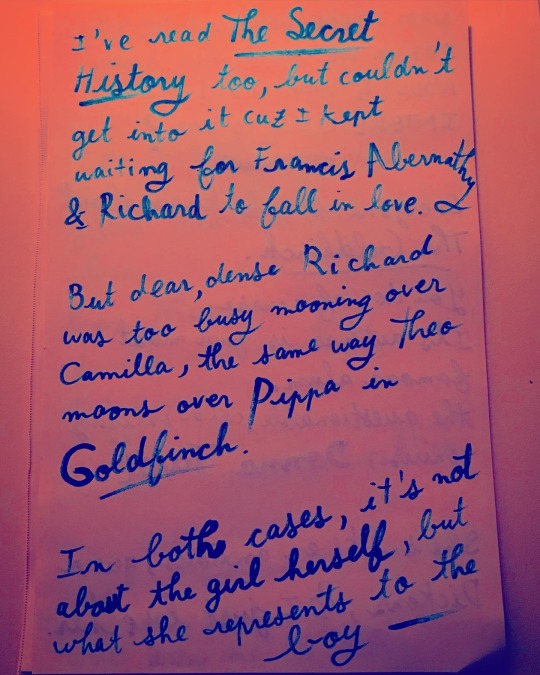 I've read The Secret
History too, but couldn't
get into it cuz I kept
waiting for Francis Abernathy
& Richard to fall in love.
But dear, dense Richard
was too busy mooning over
Camilla, the same way Theo
moons over Pippa in
Goldfinch.
In both cases, it's not
about the girl herself, but
what she represents to the
boy —